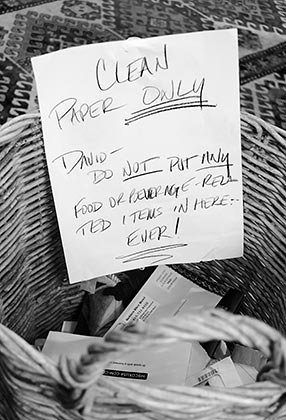 CLEAN
PAPER ONLY
DAVID-
DO NOT PUT ANY
FOOD OR BEVERAGE-RELA
TED ITEMS IN HERE--
EVER!